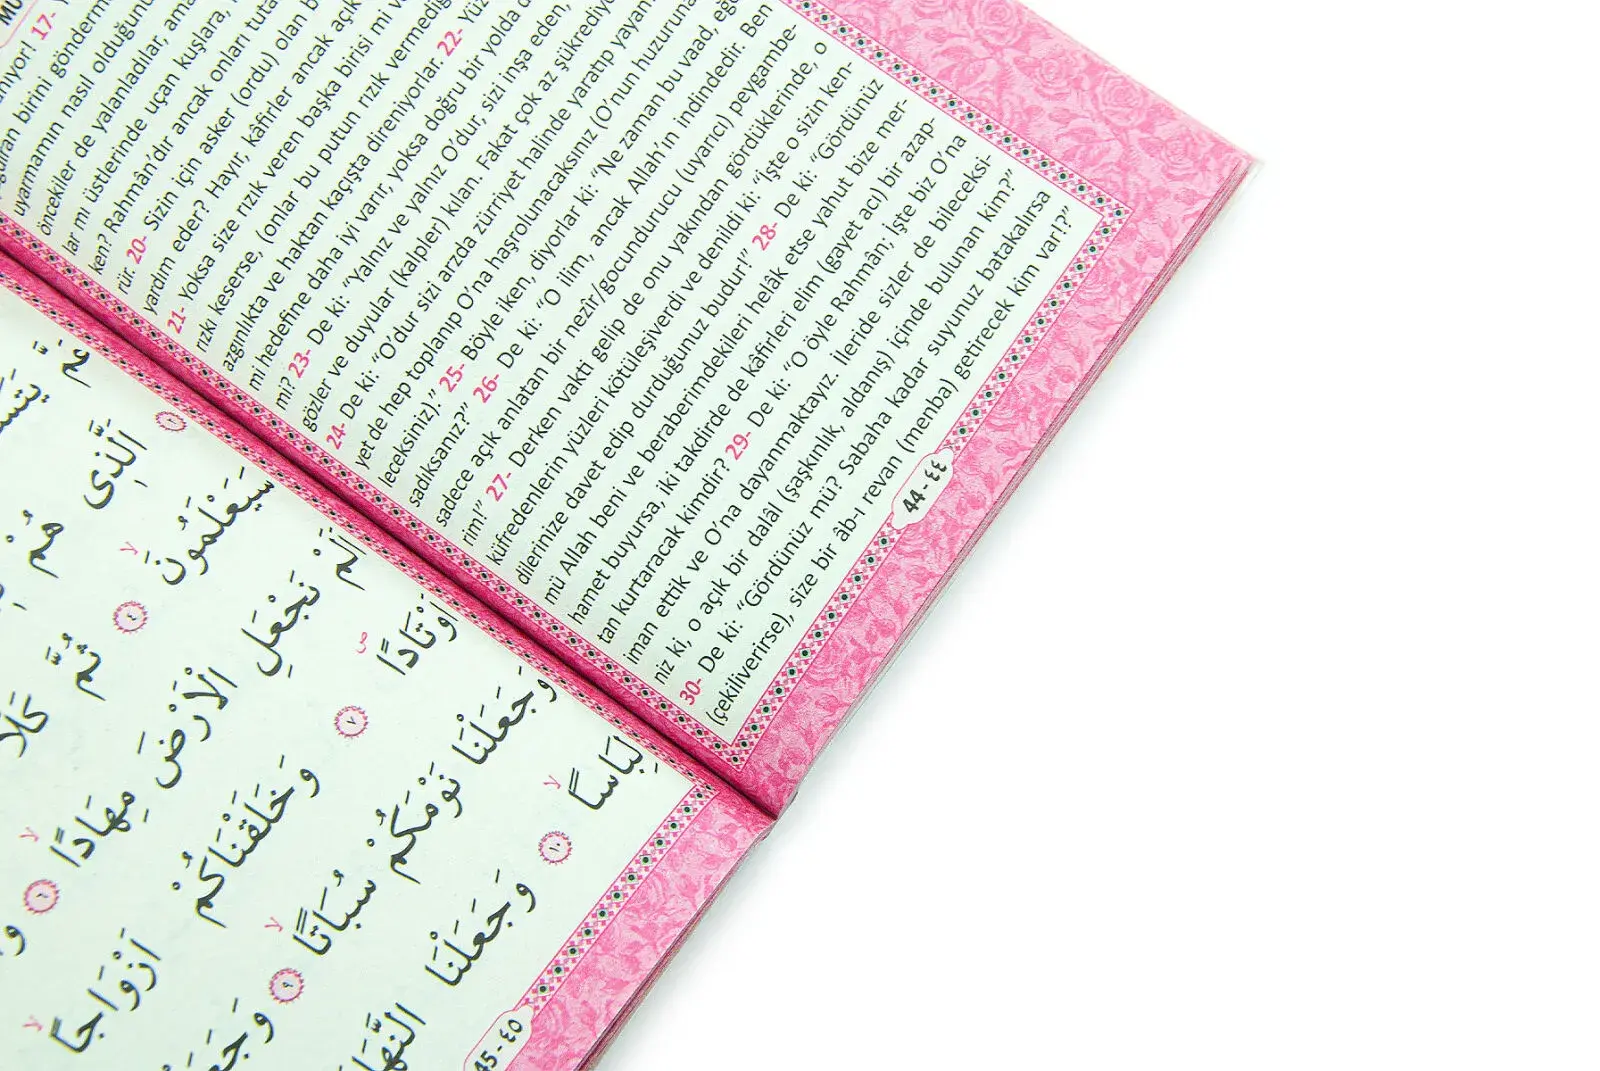 17-
ğıran birini gönderm
uyarmamın nasıl olduğunu
öncekiler de yalanladılar, ama
lar mı üstlerinde uçan kuşlara,
ken? Rahmân'dır ancak onları tuta
rür. 20- Sizin için asker (ordu) olan b
yardım eder? Hayır, kâfirler ancak açık
21- Yoksa size rızık veren başka birisi mi v
rızkı keserse, (onlar bu putun rızık vermediğ
azgınlıkta ve haktan kaçışta direniyorlar. 22- Yüz
mi hedefine daha iyi varır, yoksa doğru bir yolda d
mi? 23- De ki: “Yalnız ve yalnız O'dur, sizi inşa eden,
gözler ve duyular (kalpler) kılan. Fakat çok az şükrediyo
24- De ki: “O'dur sizi arzda zürriyet halinde yaratıp yayan
yet de hep toplanıp O'na haşrolunacaksınız (O'nun huzuruna
leceksiniz).” 25- Böyle iken, diyorlar ki: “Ne zaman bu vaad, eğe
sadıksanız?” 26- De ki: “O ilim, ancak Allah'ın indindedir. Ben
sadece açık anlatan bir nezîr/gocundurucu (uyarıcı) peygambe-
rim!” 27- Derken vakti gelip de onu yakından gördüklerinde, o
küfredenlerin yüzleri kötüleşiverdi ve denildi ki: “İşte o sizin ken-
dilerinize davet edip durduğunuz budur!” 28- De ki: “Gördünüz
mü Allah beni ve beraberimdekileri helâk etse yahut bize mer-
hamet buyursa, iki takdirde de kâfirleri elim (gayet acı) bir azap-
tan kurtaracak kimdir? 29- De ki: “O öyle Rahmân; İşte biz O'na
iman ettik ve O'na dayanmaktayız. İleride sizler de bileceksi-
niz ki, o açık bir dalâl (şaşkınlık, aldanış) içinde bulunan kim?”
30- De ki: “Gördünüz mü? Sabaha kadar suyunuz batakalırsa
(çekiliverirse), size bir âb-ı revan (menba) getirecek kim var!?”
44 - ٤٤
عَمَّ
٢ اَلَّذ۪ى هُمْ
سَيَعْلَمُونَۙ ٤ ثُمَّ كَلَّا
اَلَمْ نَجْعَلِ الْاَرْضَ مِهَادًاۙ ٦
اَوْتَادًاۖ ٧ وَخَلَقْنَاكُمْ اَزْوَاجًاۙ
وَجَعَلْنَا نَوْمَكُمْ سُبَاتًاۙ ٩
لِبَاسًاۙ ١٠ وَجَعَلْنَا
45 - ٤٥